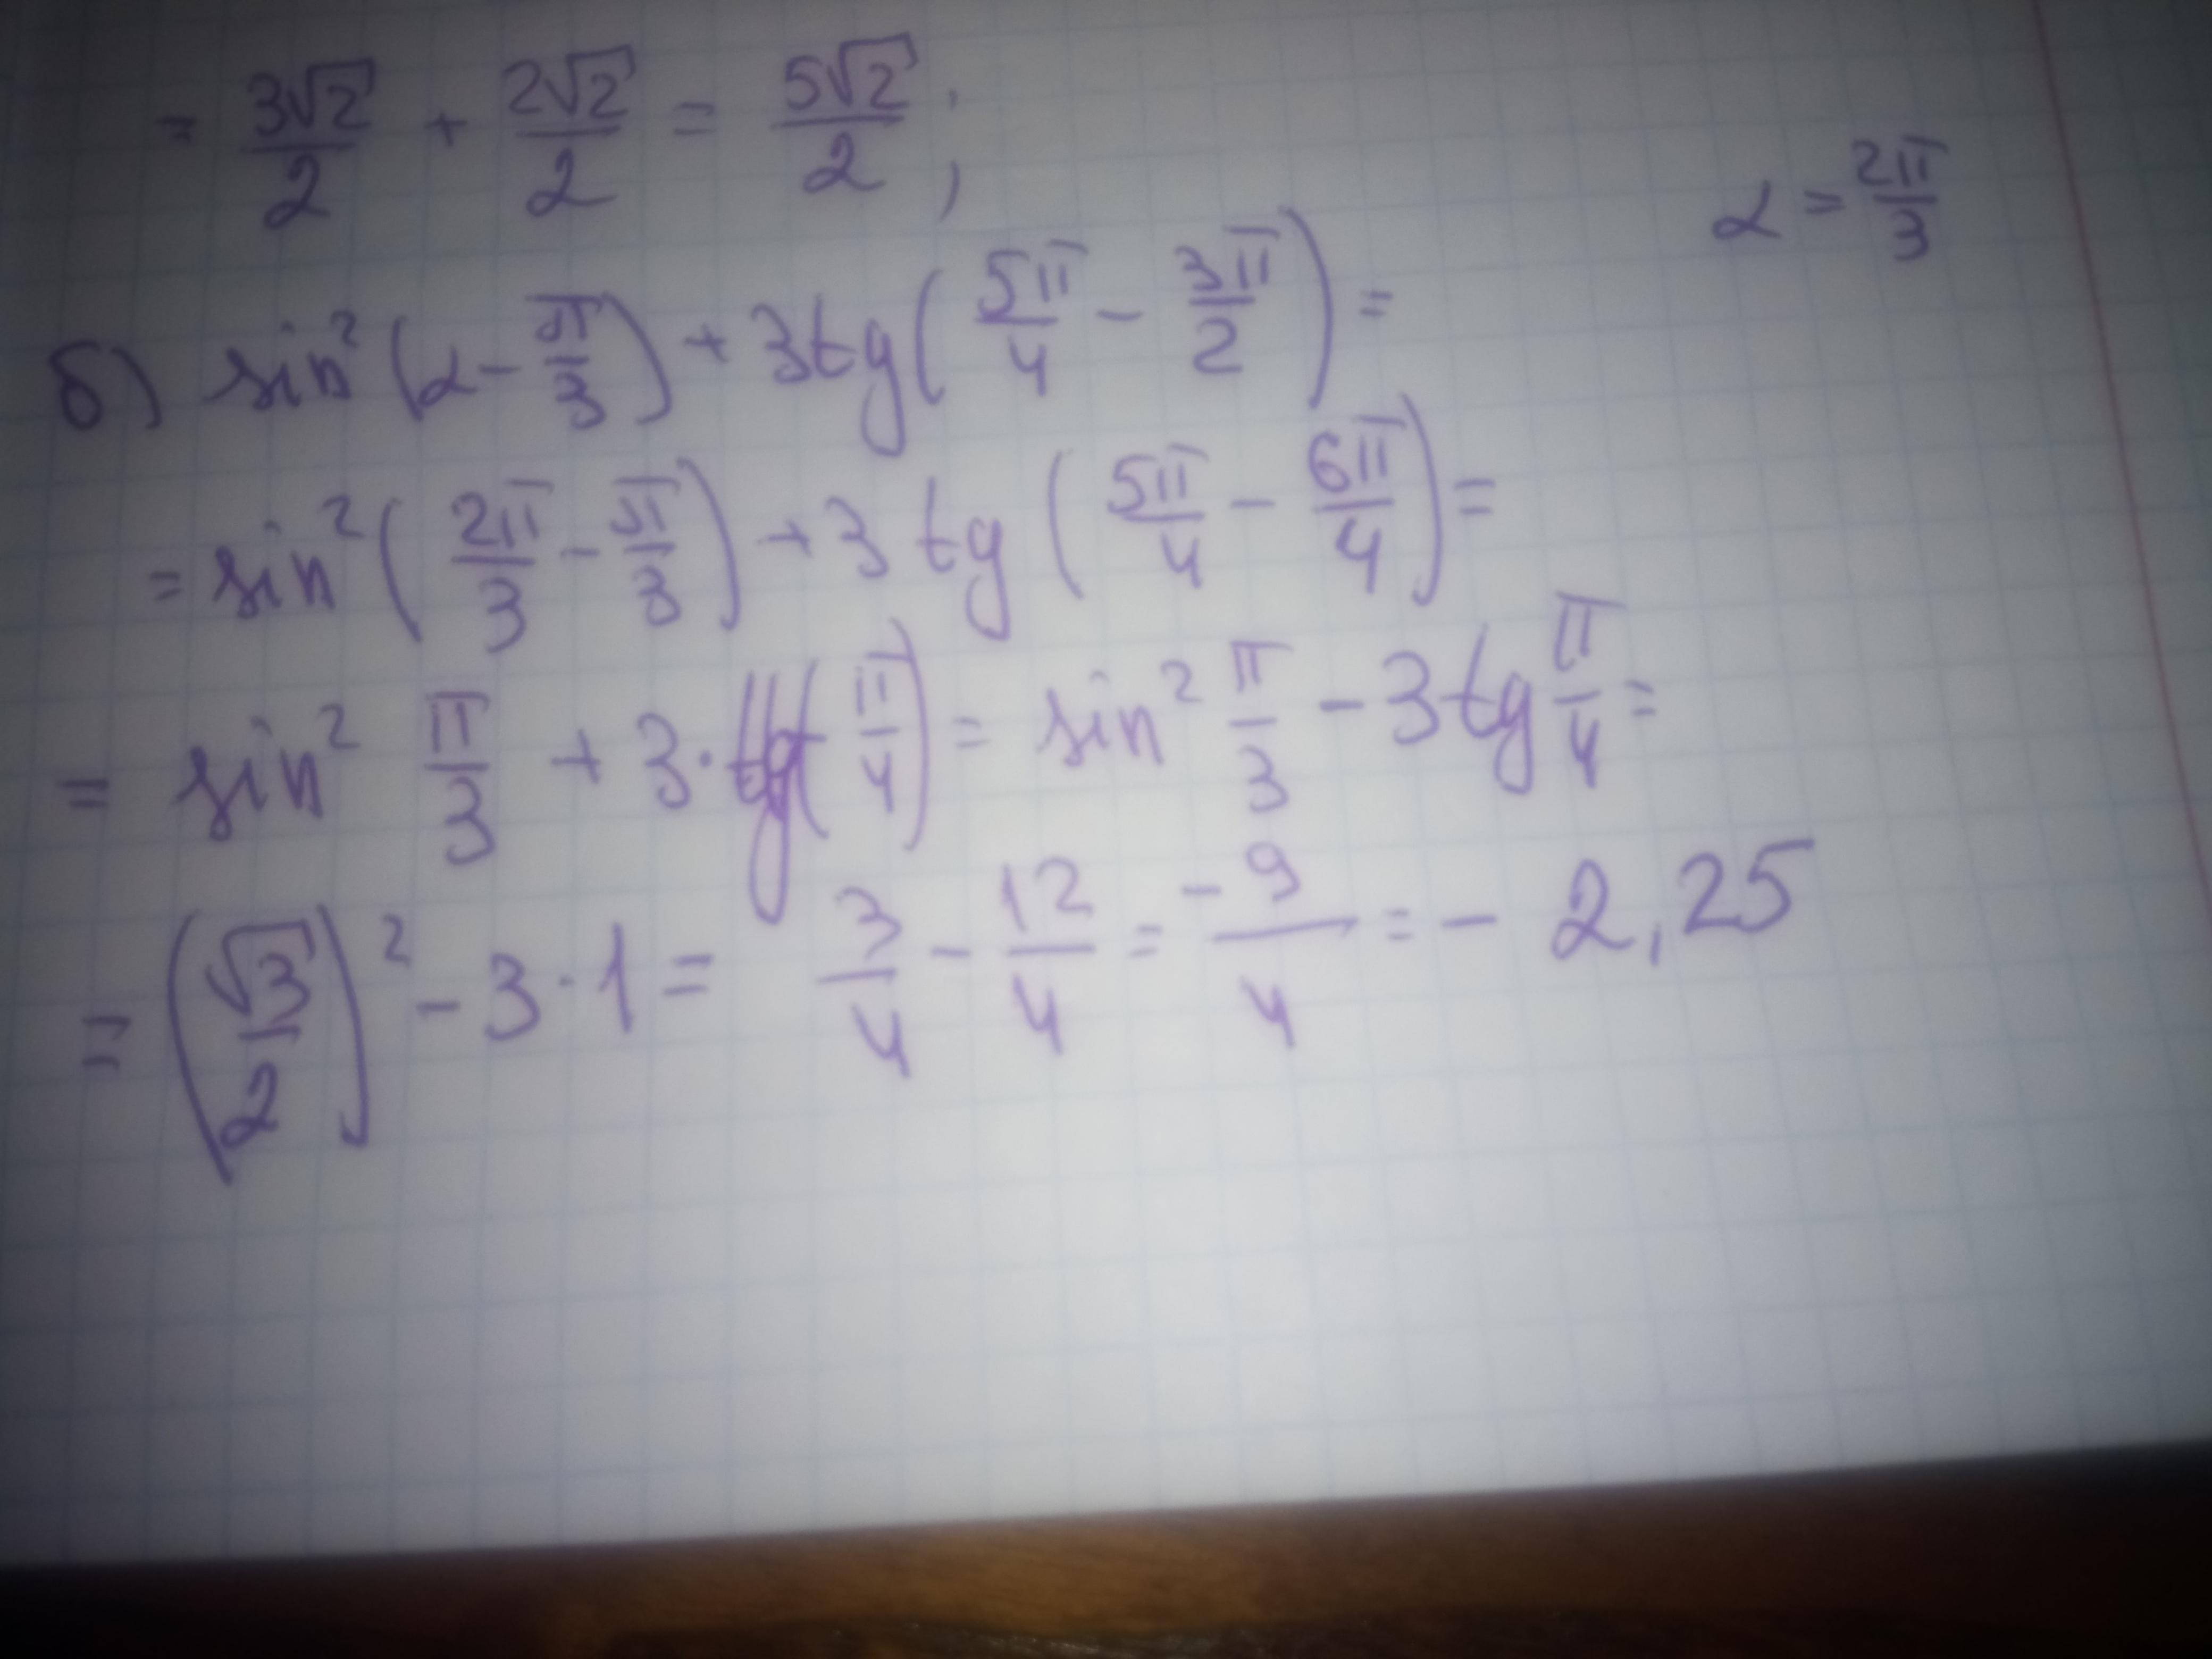 = 3√2/2 + 2√2/2 = 5√2/2 ;
α = 2π/3
б) sin²(α - π/3) + 3tg(5π/4 - 3π/2) =
= sin²(2π/3 - π/3) + 3 tg(5π/4 - 6π/4) =
= sin² π/3 + 3 · tg(- π/4) = sin² π/3 - 3tg π/4 =
= (√3/2)² - 3 · 1 = 3/4 - 12/4 = -9/4 = - 2,25